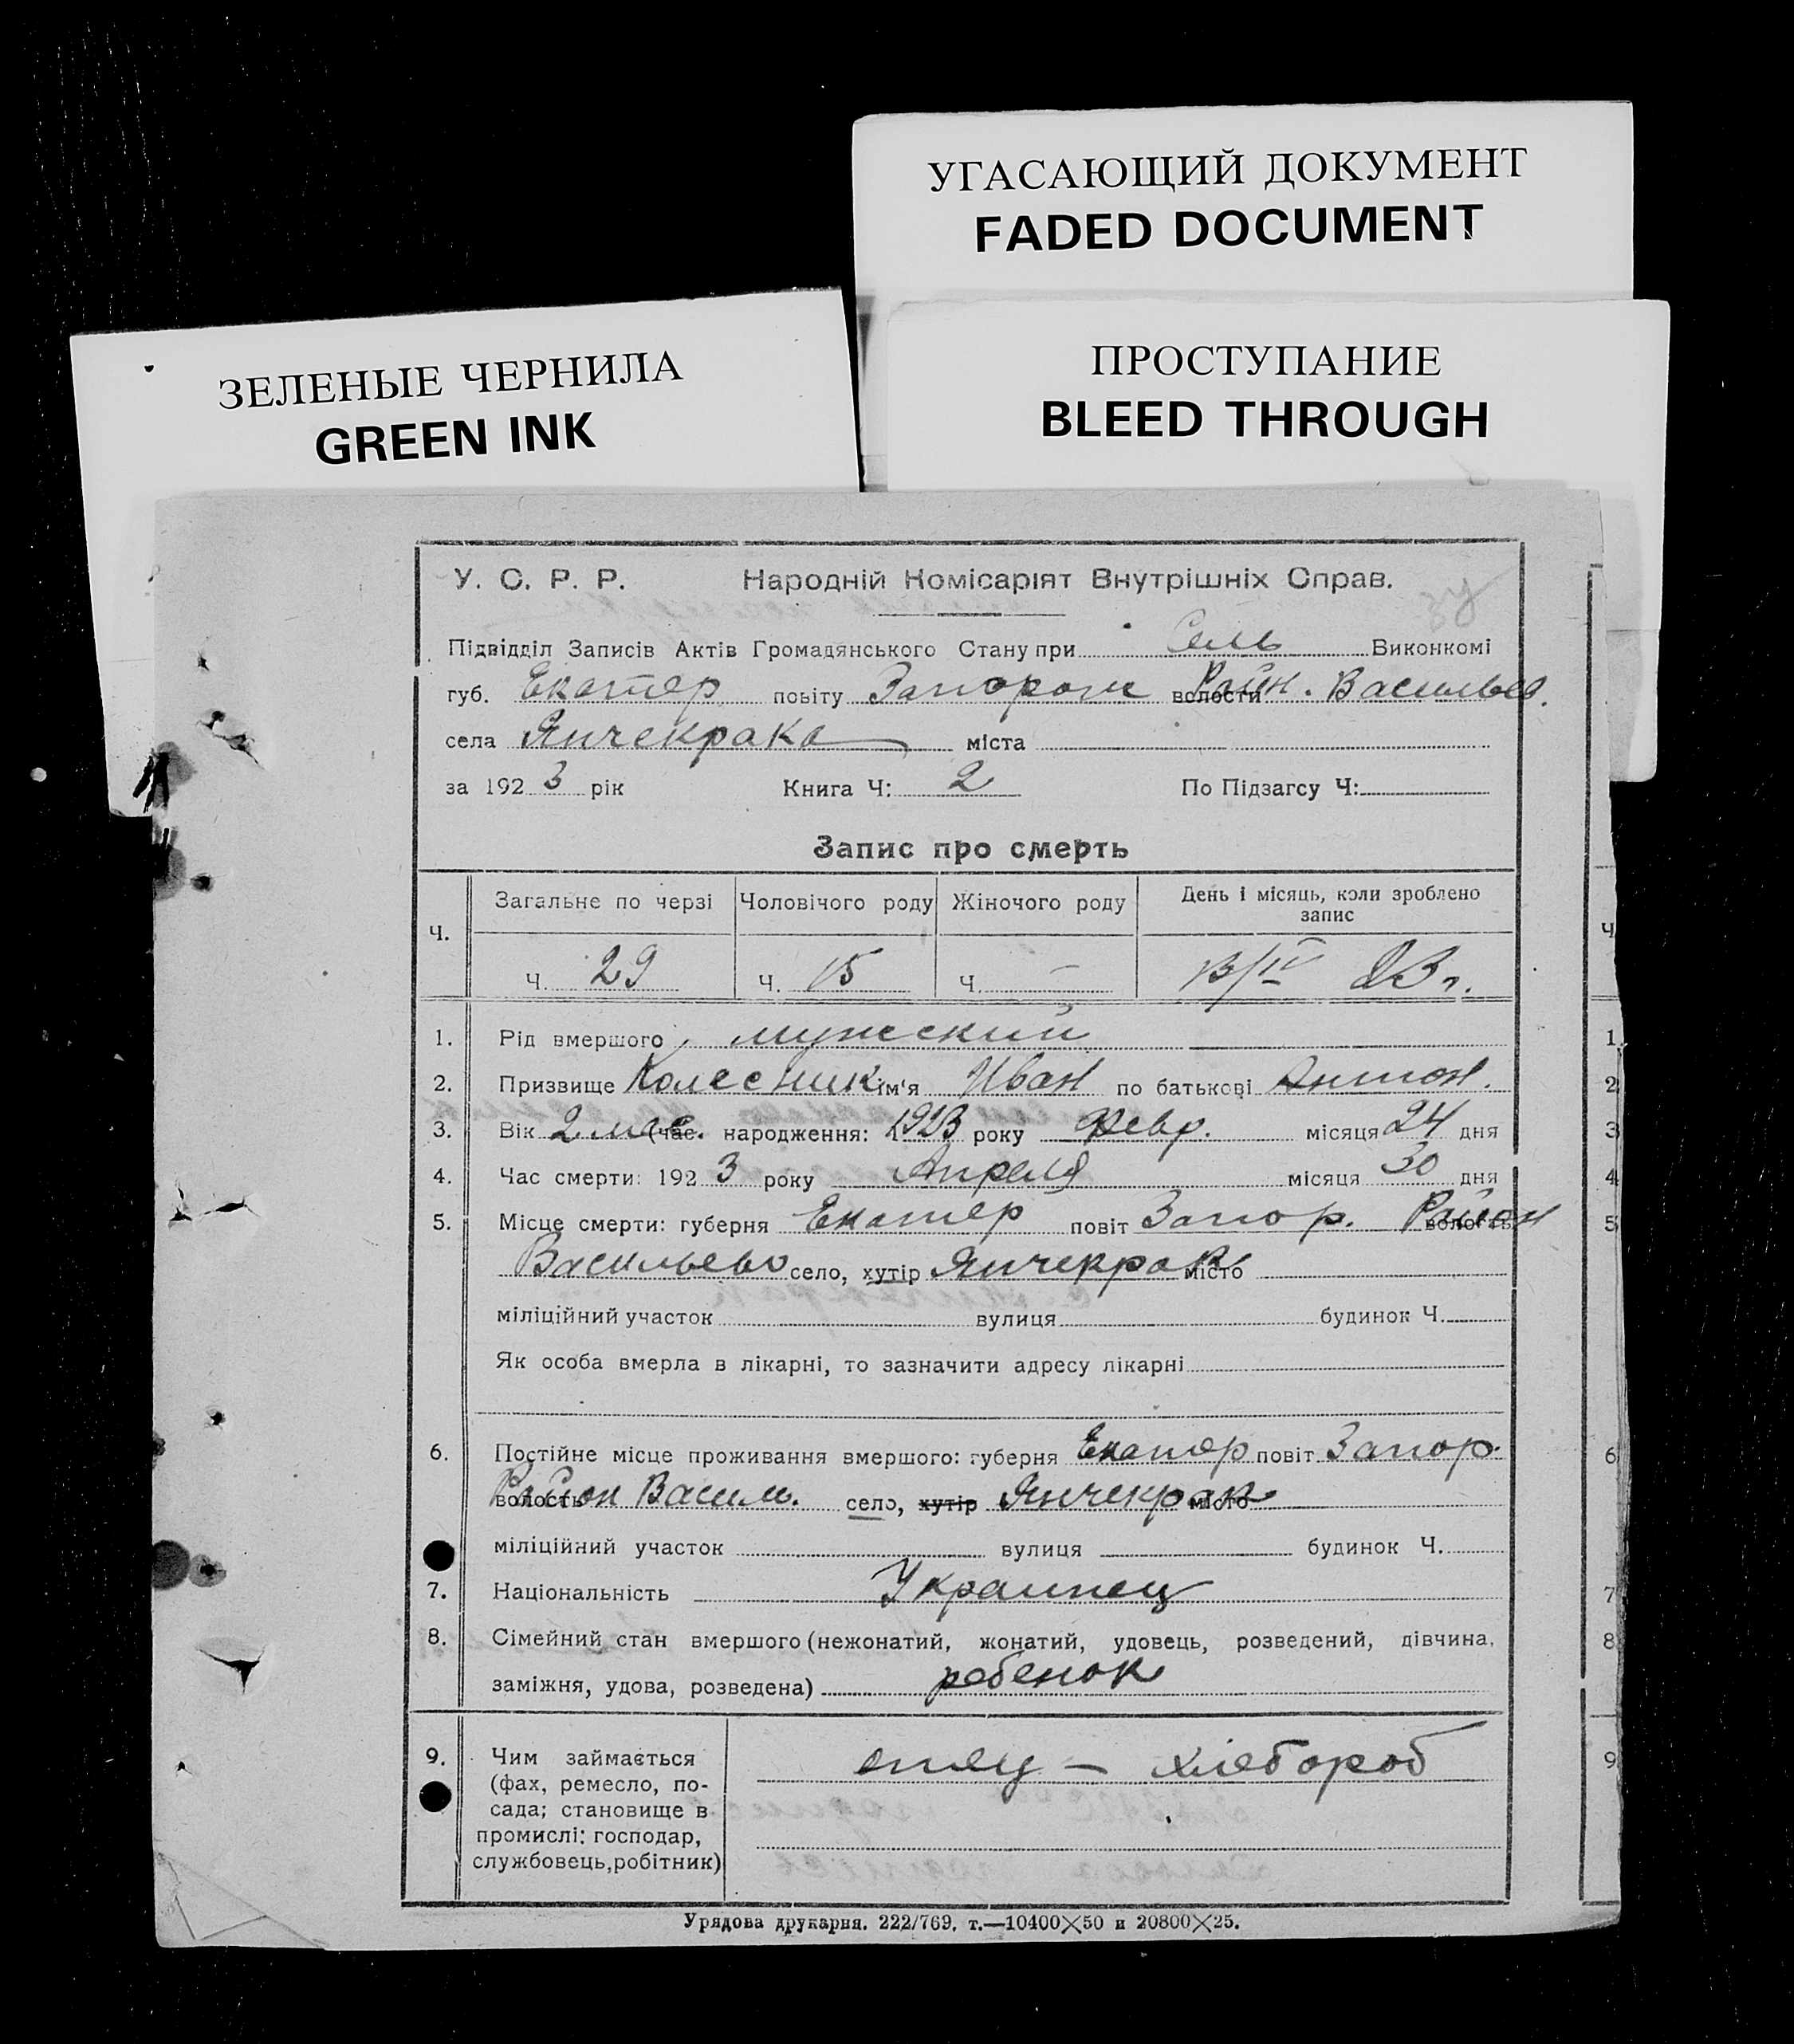 УГАСАЮЩИЙ ДОКУМЕНТ
FADED DOCUMENT
ЗЕЛЕНЫЕ ЧЕРНИЛА
GREEN INK
ПРОСТУПАНИЕ
BLEED THROUGH
У. С. Р. Р. Народній Комісаріят Внутрішніх Справ.
Підвідділ Записів Актів Громадянського Стану при Сель Виконкомі
губ. Екатер повіту Запорож волости Район. Васильев.
села Янчекрака міста
за 1923 рік Книга Ч: 2 По Підзагсу Ч:
Запис про смерть
Ч. Загальне по черзі Чоловічого роду Жіночого роду День і місяць, коли зроблено запис
Ч. 29 Ч. 15 Ч. — 13/IV 23 г.
1. Рід вмершого мужеский
2. Призвище Колесник ім'я Иван по батькові Антон.
3. Вік 2 мес. (час народження: 1923 року Февр. місяця 24 дня
4. Час смерти: 1923 року Апреля місяця 30 дня
5. Місце смерти: губерня Екатер повіт Запор. Район волость
Васильево село, хутір Янчекрак місто
міліційний участок вулиця будинок Ч.
Як особа вмерла в лікарні, то зазначити адресу лікарні
6. Постійне місце проживання вмершого: губерня Екатер повіт Запор.
волость Район Васил. село, хутір Янчекрак місто
міліційний участок вулиця будинок Ч.
7. Національність Украинец
8. Сімейний стан вмершого (нежонатий, жонатий, удовець, розведений, дівчина,
заміжня, удова, розведена) ребенок
9. Чим займається отец — хлебороб
(фах, ремесло, по-
сада; становище в
промислі: господар,
службовець, робітник)
Урядова друкарня. 222/769. т.—10400×50 и 20800×25.
Ч
1.
2
3
4
5
6
7
8
9